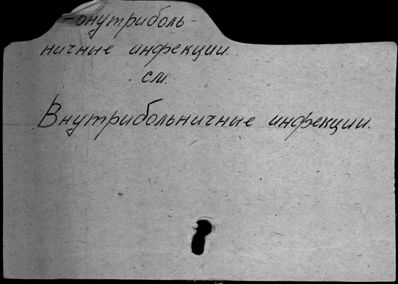 -онутриболь-
ничные инфекции.
см.
Внутрибольничные инфекции.